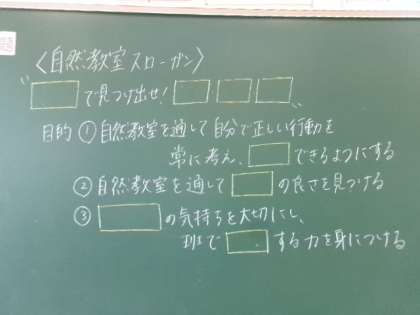 〈自然教室スローガン〉
"□で見つけ出せ!□□□"
目的 ①自然教室を通して自分で正しい行動を
常に考え、□できるようにする
②自然教室を通して□の良さを見つける
③□の気持ちを大切にし、
班で□する力を身につける